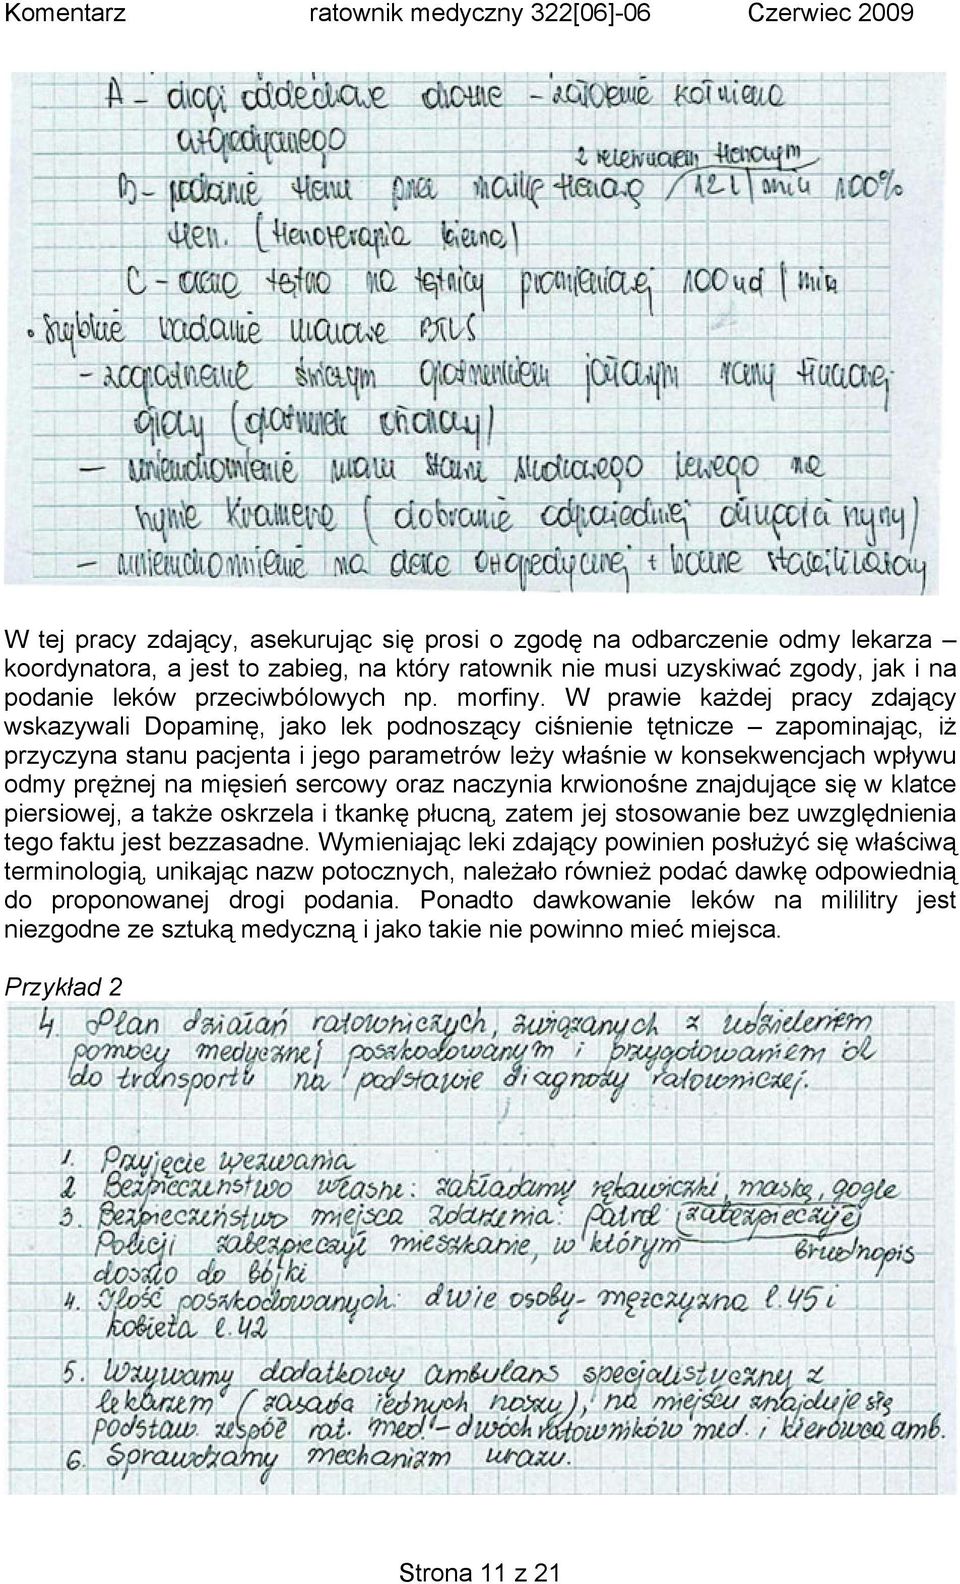 Komentarz ratownik medyczny 322[06]-06 Czerwiec 2009
A - drogi oddechowe drożne - założenie kołnierza
ortopedycznego
z rezerwuarem tlenowym
B - podanie tlenu przez maskę tlenową / 12 l / min 100%
tlen. (tlenoterapia bierna)
C - ocena tętno na tętnicy promieniowej 100 ud / min
• Szybkie badanie urazowe BTLS
- zaopatrzenie świeżym opatrunkiem jałowym rany tłuczonej
głowy (opatrunek osłonowy)
- unieruchomienie urazu stawu skokowego lewego na
szynie Kramera (dobranie odpowiedniej długości szyny)
- unieruchomienie na desce ortopedycznej + boczne stabilizatory
W tej pracy zdający, asekurując się prosi o zgodę na odbarczenie odmy lekarza –
koordynatora, a jest to zabieg, na który ratownik nie musi uzyskiwać zgody, jak i na
podanie leków przeciwbólowych np. morfiny. W prawie każdej pracy zdający
wskazywali Dopaminę, jako lek podnoszący ciśnienie tętnicze – zapominając, iż
przyczyna stanu pacjenta i jego parametrów leży właśnie w konsekwencjach wpływu
odmy prężnej na mięsień sercowy oraz naczynia krwionośne znajdujące się w klatce
piersiowej, a także oskrzela i tkankę płucną, zatem jej stosowanie bez uwzględnienia
tego faktu jest bezzasadne. Wymieniając leki zdający powinien posłużyć się właściwą
terminologią, unikając nazw potocznych, należało również podać dawkę odpowiednią
do proponowanej drogi podania. Ponadto dawkowanie leków na mililitry jest
niezgodne ze sztuką medyczną i jako takie nie powinno mieć miejsca.
Przykład 2
4. Plan działań ratowniczych, związanych z udzieleniem
pomocy medycznej poszkodowanym i przygotowaniem ich
do transportu na podstawie diagnozy ratowniczej.
1. Przyjęcie wezwania
2 Bezpieczeństwo własne: zakładamy rękawiczki, maskę, gogle
3. Bezpieczeństwo miejsca zdarzenia: Patrol (zabezpieczył)
Policji zabezpieczył mieszkanie, w którym brudnopis
doszło do bójki
4. Ilość poszkodowanych: dwie osoby - mężczyzna l. 45 i
kobieta l. 42
5. Wzywamy dodatkowy ambulans specjalistyczny z
lekarzem (zasada jednych noszy), na miejscu znajduje się
podstaw. zespół rat. med. - dwóch ratowników med. i kierowca amb.
6. Sprawdzamy mechanizm urazu.
Strona 11 z 21